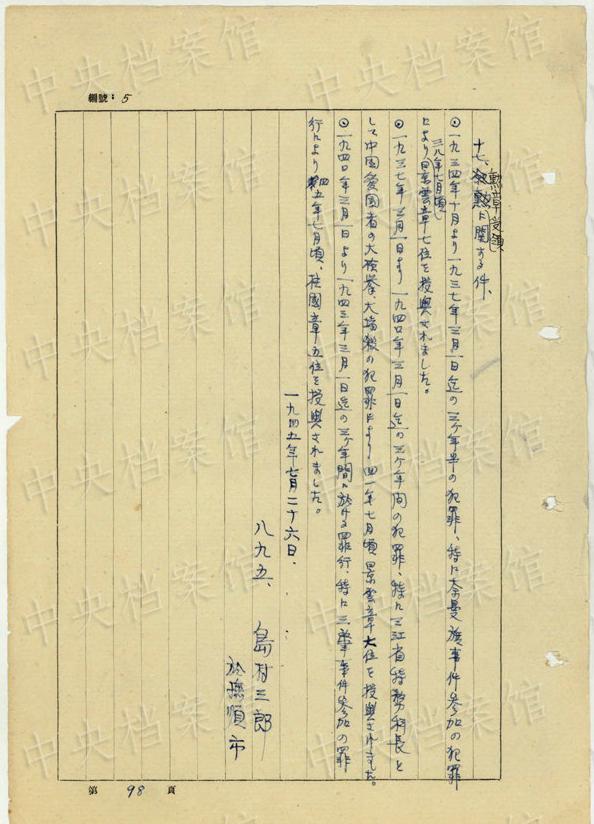 編號：5
十七、叙勲に関する件、
勲章受領
◎一九三四年十月より一九三七年三月一日迄の三ヶ年半の犯罪、特に大余曼族事件参加の犯罪
三八年七月頃
により景雲章七位を授與されました。
◎一九三七年三月一日より一九四〇年三月一日迄の三ヶ年間の犯罪、特に三江省特務科長と
して中国愛国者の大検挙、大揺殺の犯罪により四一年七月頃景雲章六位を授與されました。
◎一九四〇年三月一日より一九四三年三月一日迄の三ヶ年間に於ける罪行、特に三肇事件参加の罪
行により四五年七月頃、柱國章五位を授與されました。
一九五四年七月二十六日、
八九五、 島村三郎
於撫順市
第 98 頁
中央档案馆